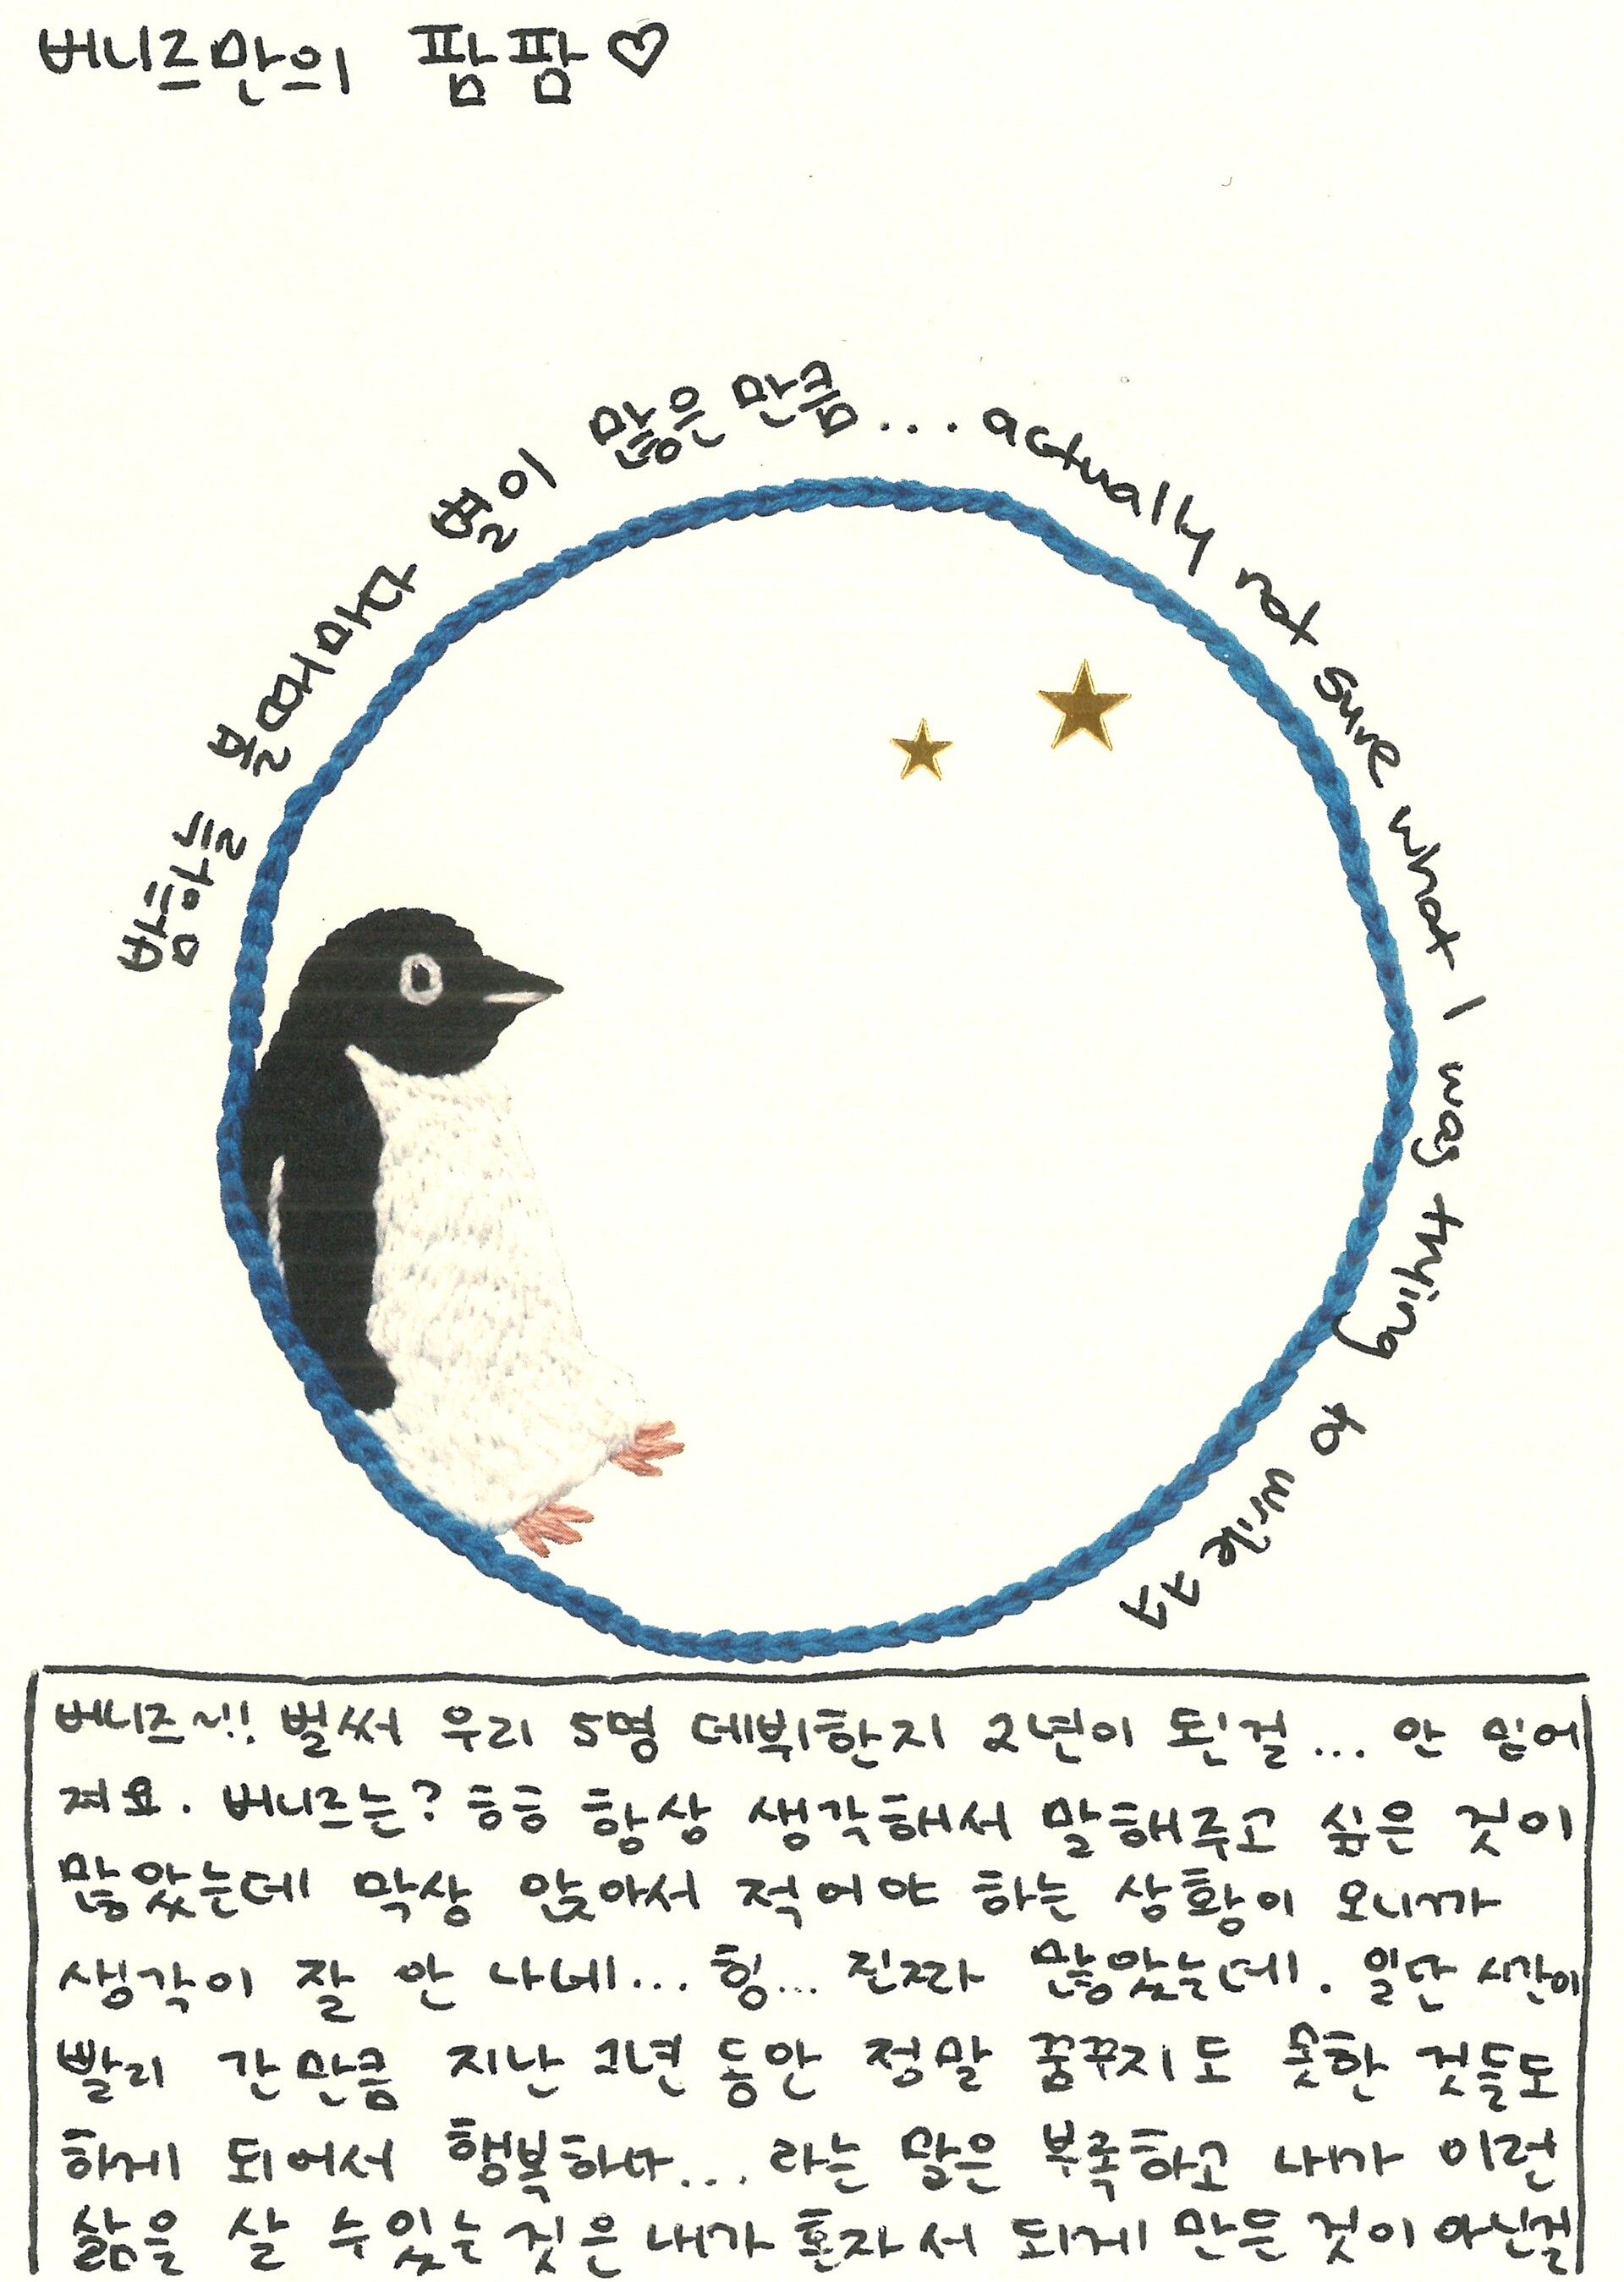 버니즈만의 팜팜♡
밤하늘 볼때마다 별이 많은 만큼... actually not sure what I was trying to write ㅋㅋ
버니즈~!! 벌써 우리 5명 데뷔한지 2년이 된걸... 안 믿어
져요. 버니즈는? 흠흠 항상 생각해서 말해주고 싶은 것이
많았는데 막상 앉아서 적어야 하는 상황이 오니까
생각이 잘 안 나네... 힝... 진짜 많았는데. 일단 시간이
빨리 간 만큼 지난 2년 동안 정말 꿈꾸지도 못한 것들도
하게 되어서 행복하다... 라는 말은 부족하고 내가 이런
삶을 살 수있는 것은 내가 혼자서 되게 만든 것이 아닌걸